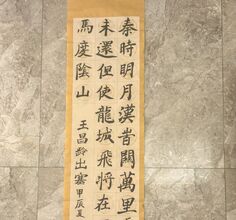 秦時明月漢旹關萬里
未還但使龍城飛將在
馬度陰山
王昌齡出塞甲辰夏